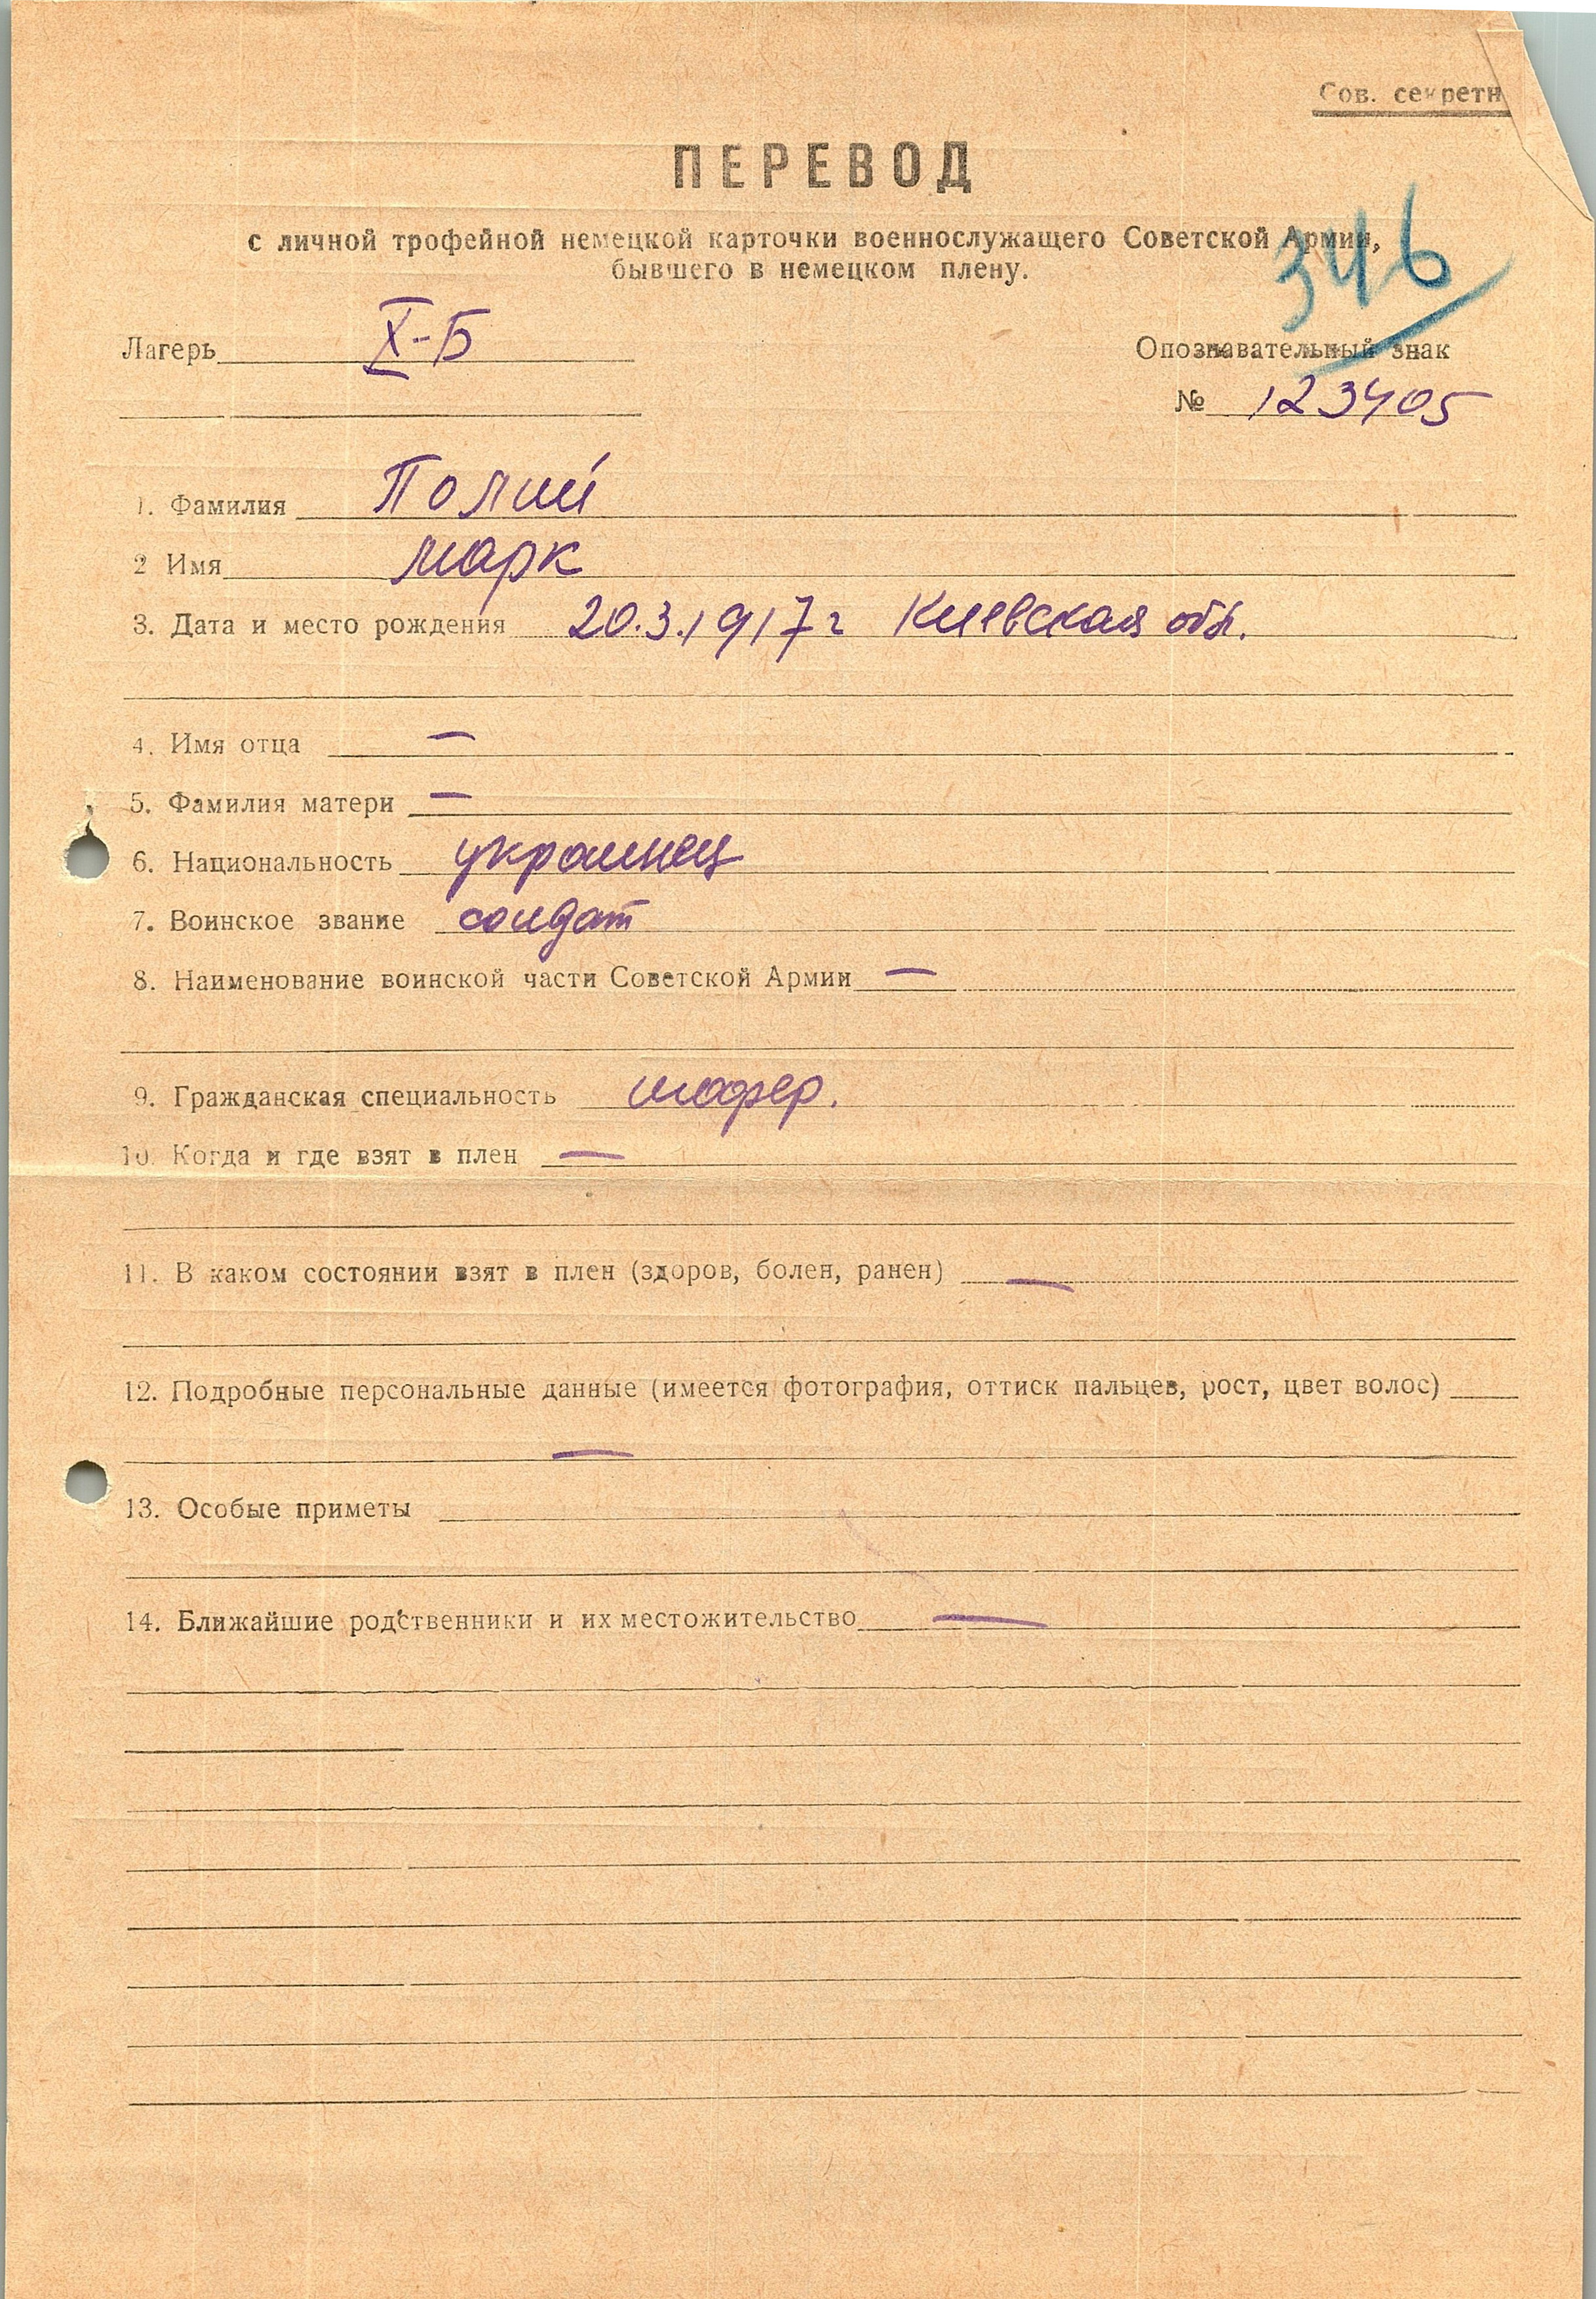 Сов. секретн
ПЕРЕВОД
с личной трофейной немецкой карточки военнослужащего Советской Армии,
бывшего в немецком плену.
346
Лагерь X-Б
Опознавательный знак
№ 123405
1. Фамилия Полий
2 Имя Марк
3. Дата и место рождения 20.3.1917 г Киевская обл.
4. Имя отца —
5. Фамилия матери —
6. Национальность украинец
7. Воинское звание солдат
8. Наименование воинской части Советской Армии —
9. Гражданская специальность шофер.
10. Когда и где взят в плен —
11. В каком состоянии взят в плен (здоров, болен, ранен) —
12. Подробные персональные данные (имеется фотография, оттиск пальцев, рост, цвет волос)
—
13. Особые приметы
14. Ближайшие родственники и их местожительство —